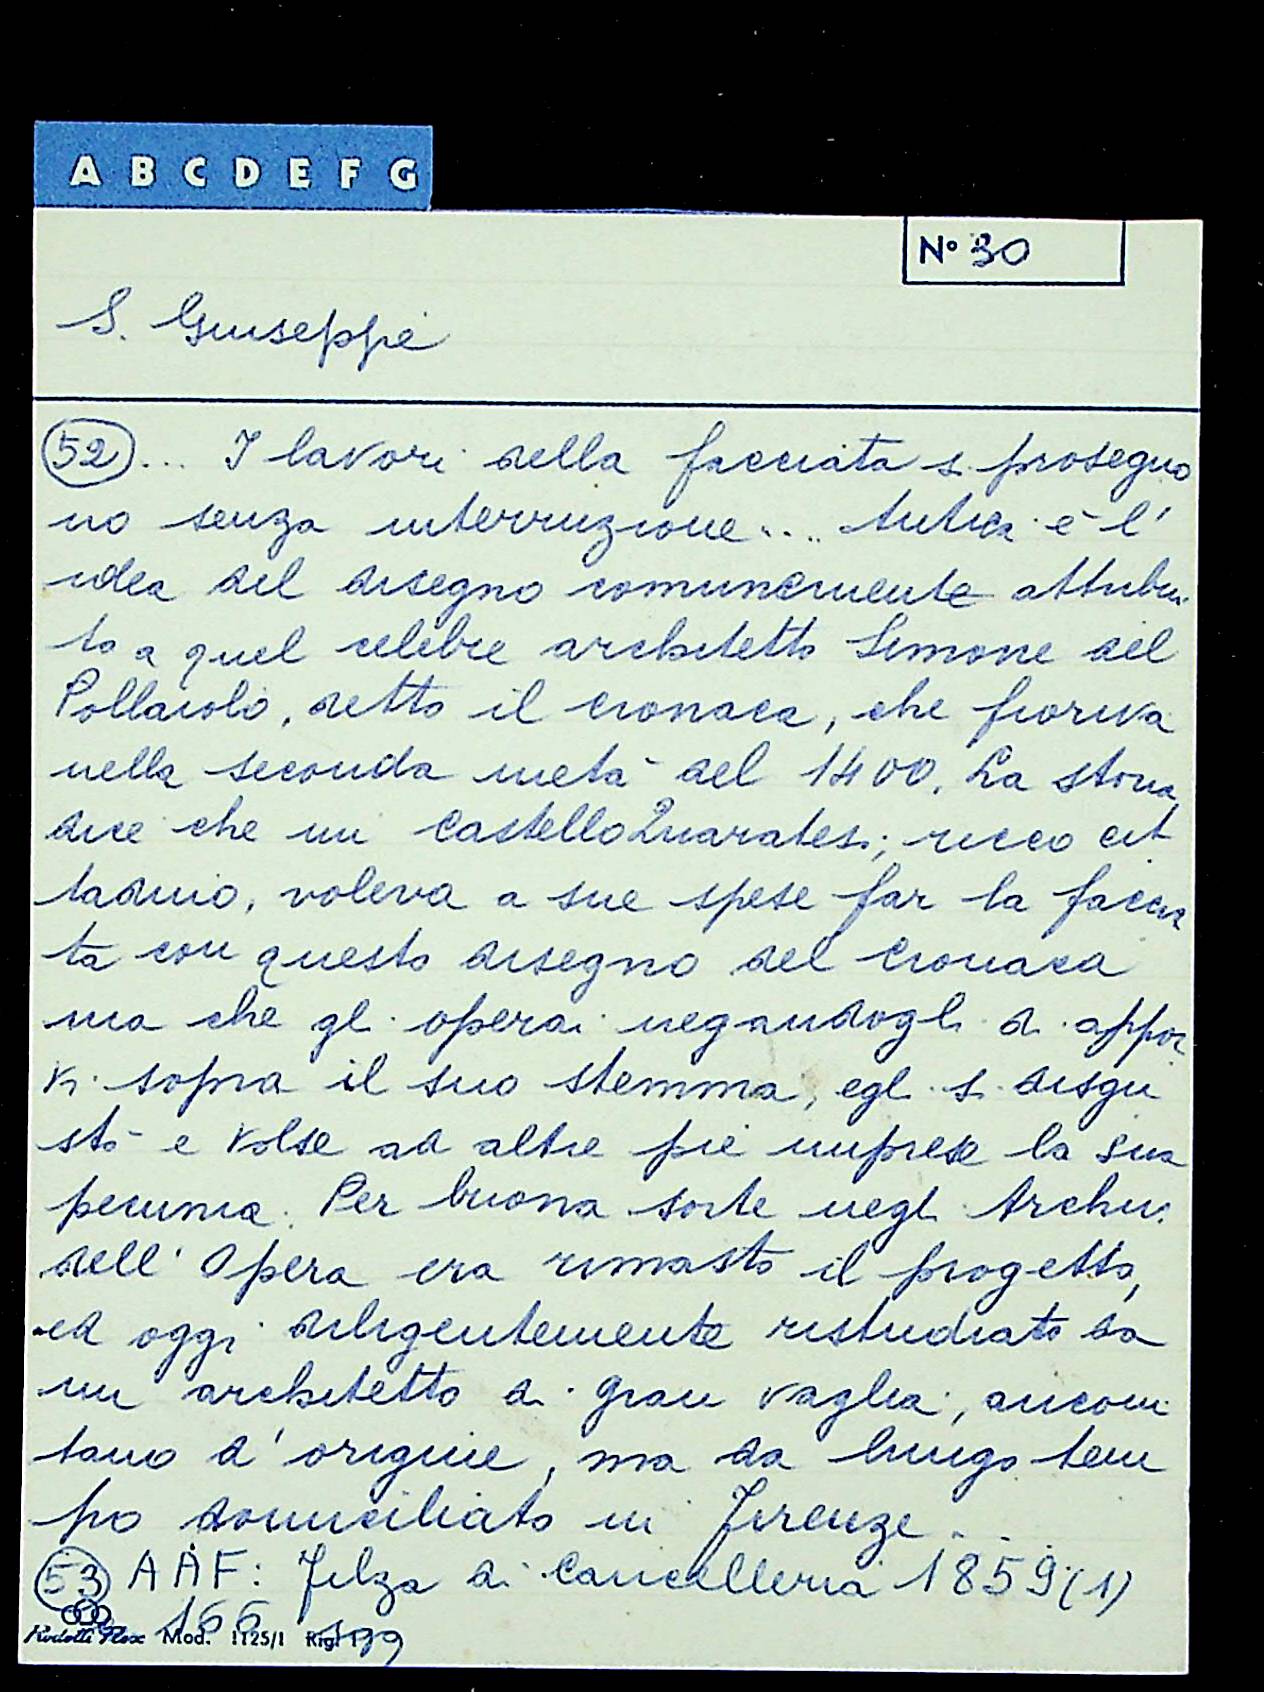 A B C D E F G
N° 30
S. Giuseppe
52 ... I lavori della facciata si prosegno
no senza interruzione.... Antica è l'
idea del disegno comunemente attribui
to a quel celebre architetto Simone del
Pollaiolo, detto il Cronaca, che fioriva
nella seconda metà del 1400. La storia
dice che un Castello Quaratesi, ricco cit
tadino, voleva a sue spese far la faccia
ta con questo disegno del Cronaca
ma che gli operai negandogli di appor
vi sopra il suo stemma, egli si disgu
stò e volse ad altre pie imprese la sua
pecunia. Per buona sorte negli Archivi
dell'Opera era rimasto il progetto,
ed oggi diligentemente ristudiato da
un architetto di gran vaglia, anconi
tano d'origine, ma da lungo tem
po domiciliato in Firenze...
53 AAF: Filza di Cancelleria 1859 (1)
n. 166 199
Mod. 1125/1 Rig.